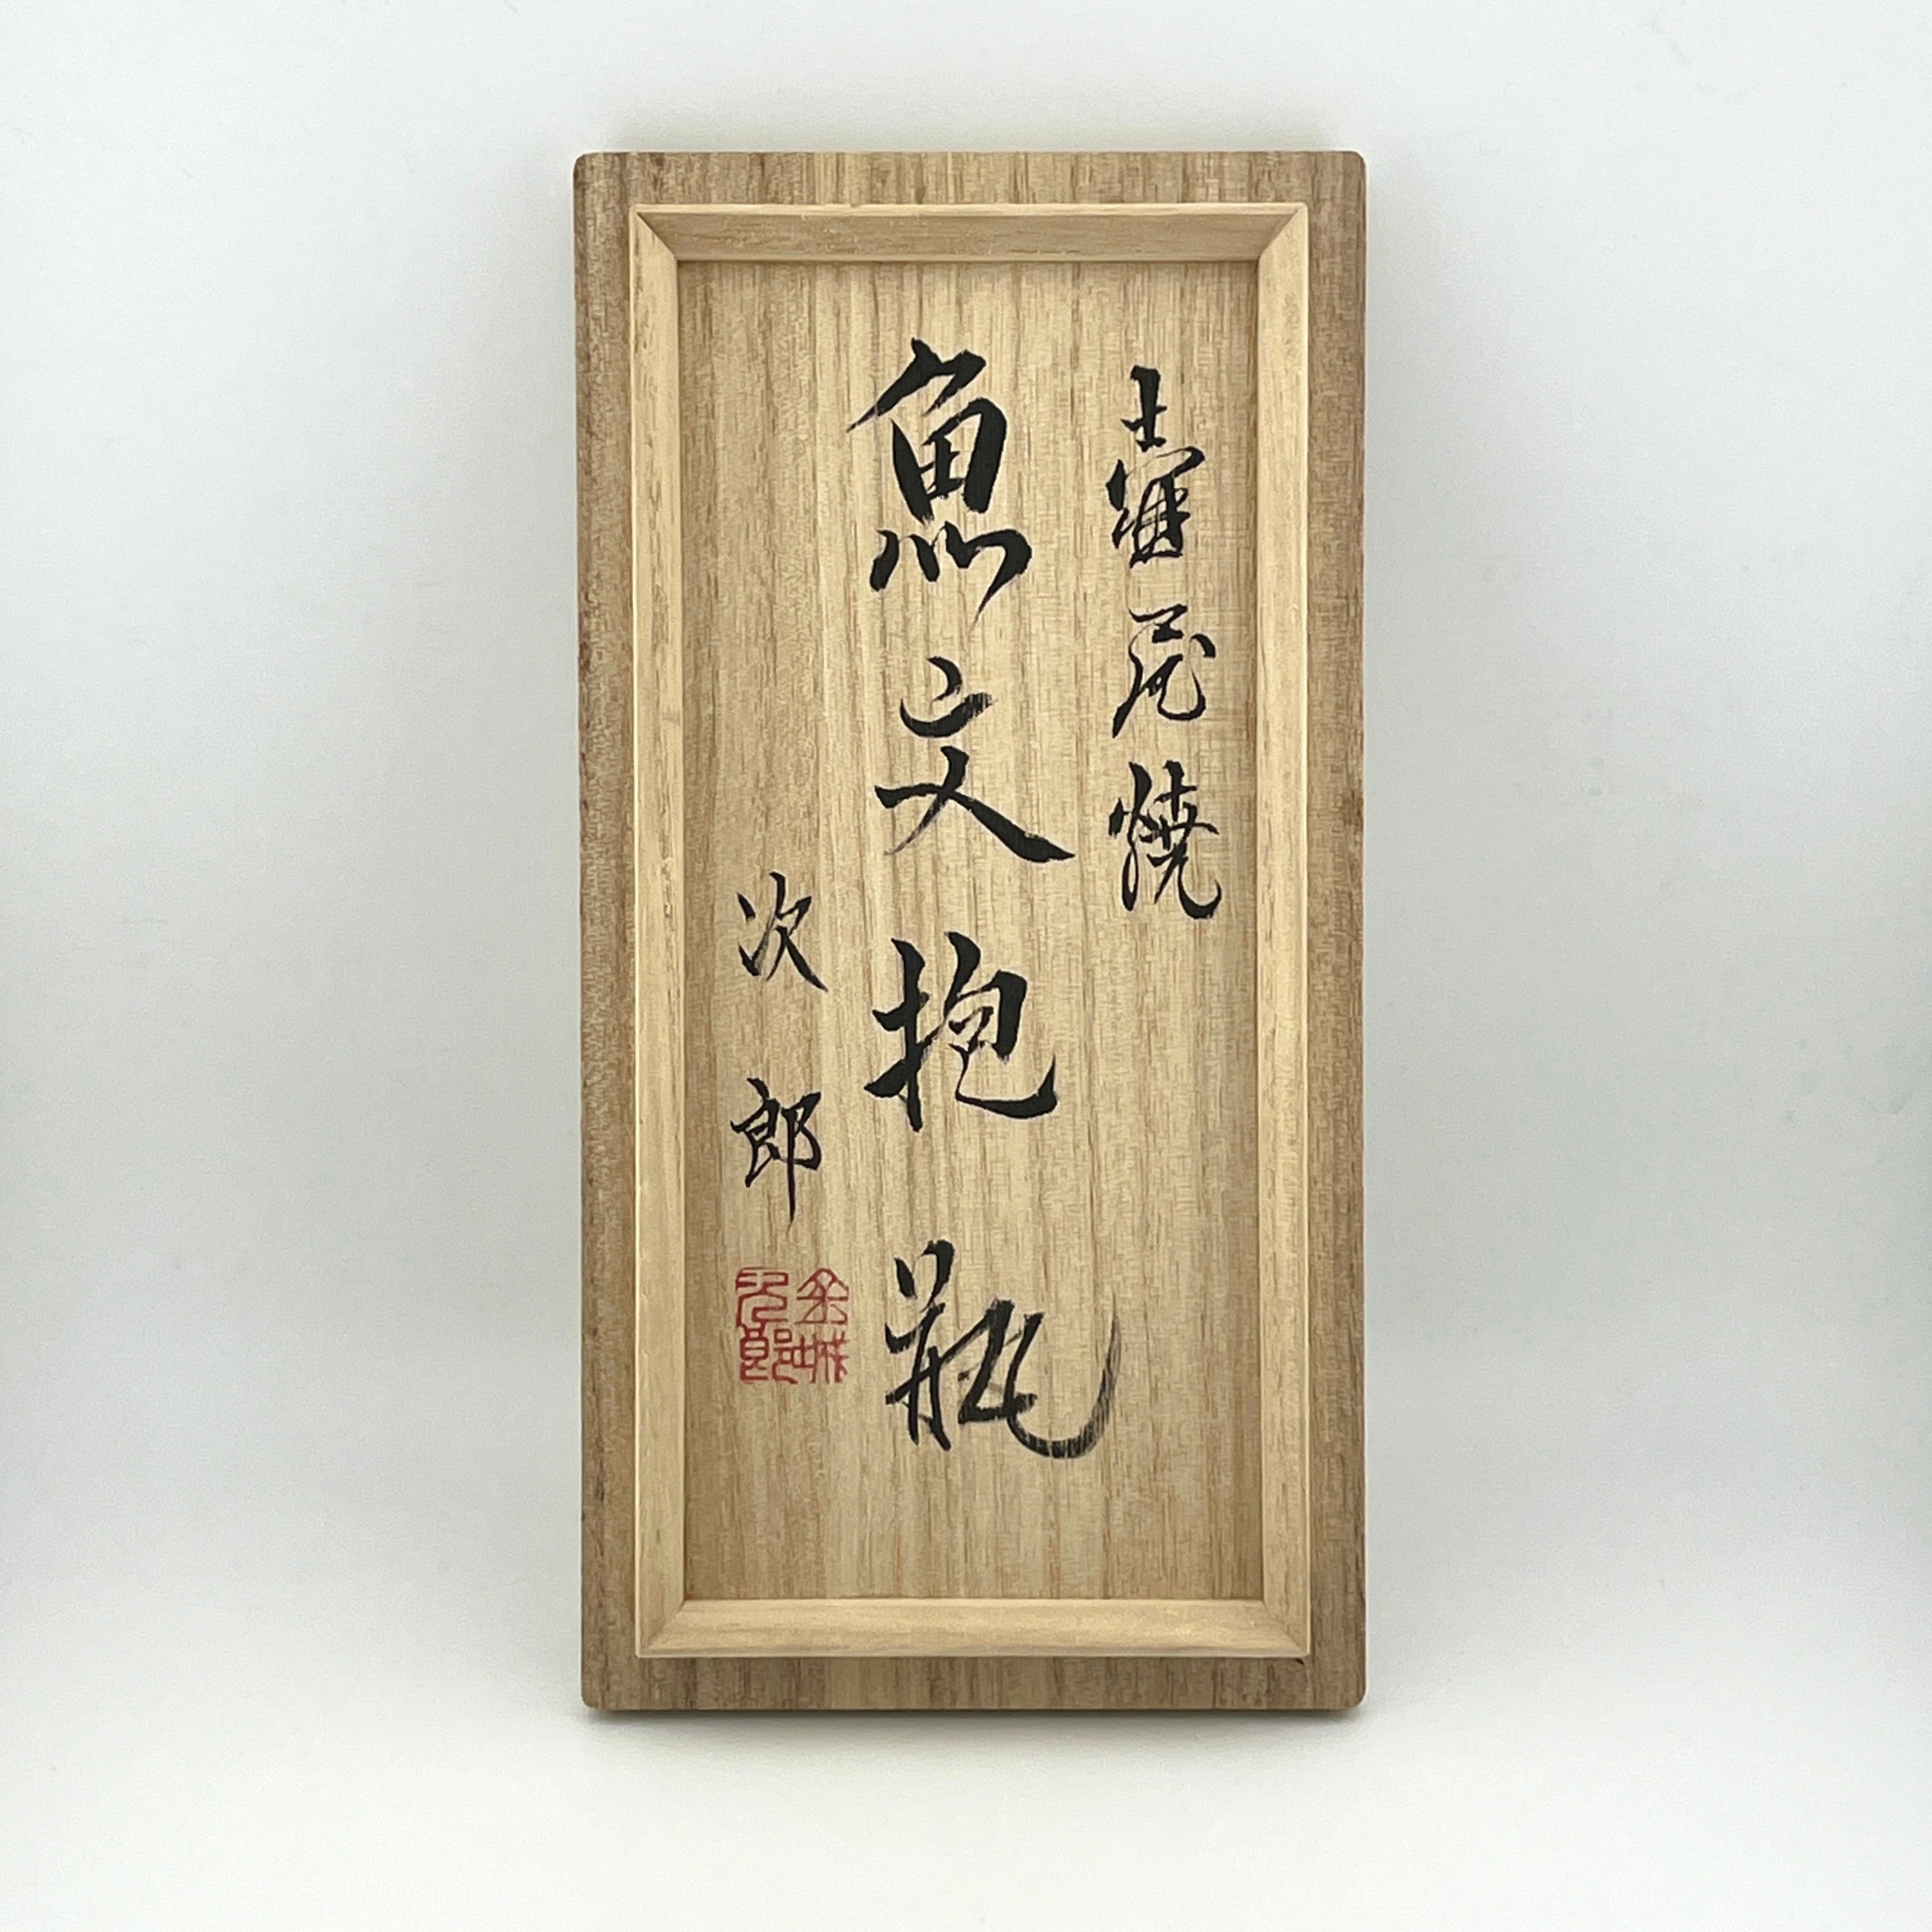 壷屋焼
魚文抱瓶
次郎
金城次郎